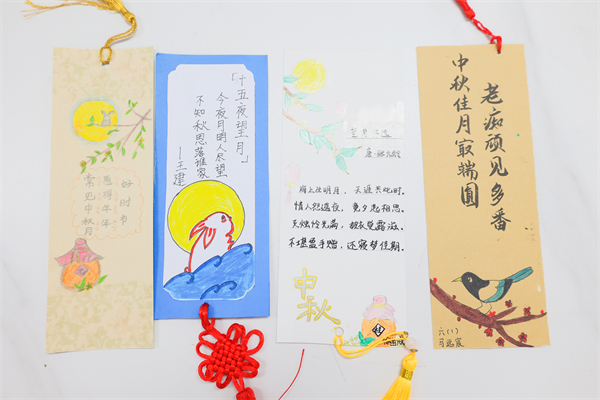 好时节
愿得年年
常见中秋月
「十五夜望月」
今夜月明人尽望
不知秋思落谁家
—王建
望月怀远
唐·张九龄
海上生明月，天涯共此时。
情人怨遥夜，竟夕起相思。
灭烛怜光满，披衣觉露滋。
不堪盈手赠，还寝梦佳期。
中秋
老痴顽见多番
中秋佳月最端圆
六(1)